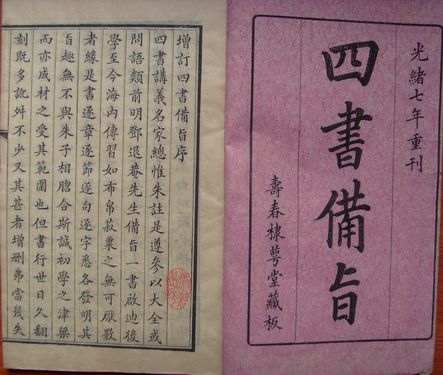 光緒七年重刊
四書備旨
壽春棣萼堂藏板
增訂四書備旨序
四書講義名家總惟朱註是遵參以大全或
問語類前明鄧退菴先生備旨一書啟迪後
學至今海內傳習如布帛菽粟之無可厭斁
者緣是書逐章逐節逐句逐字悉各發明其
旨趣無不與朱子相脗合斯誠初學之津梁
而亦成材之受其範圍也但書行世日久翻
刻既多訛舛不少又其甚者增刪弗當幾失